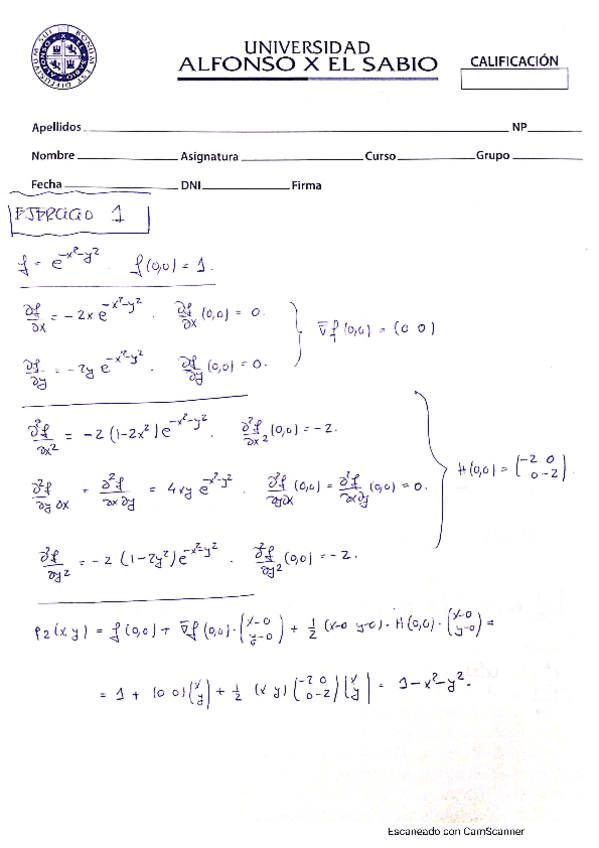 UNIVERSIDAD
ALFONSO X EL SABIO
CALIFICACIÓN
Apellidos NP
Nombre Asignatura Curso Grupo
Fecha DNI Firma
EJERCICIO 1
f = e^{-x²-y²} . f(0,0) = 1.
∂f/∂x = -2x e^{-x²-y²} . ∂f/∂x (0,0) = 0.
∇f (0,0) = (0 0)
∂f/∂y = -2y e^{-x²-y²} . ∂f/∂y (0,0) = 0.
∂²f/∂x² = -2 (1-2x²) e^{-x²-y²} . ∂²f/∂x² (0,0) = -2.
∂²f/∂y∂x = ∂²f/∂x∂y = 4xy e^{-x²-y²} . ∂²f/∂y∂x (0,0) = ∂²f/∂x∂y (0,0) = 0.
H(0,0) = (-2 0 / 0 -2).
∂²f/∂y² = -2 (1-2y²) e^{-x²-y²} . ∂²f/∂y² (0,0) = -2.
P2(x,y) = f(0,0) + ∇f (0,0)·(x-0 / y-0) + 1/2 (x-0 y-0)·H(0,0)·(x-0 / y-0) =
= 1 + (0 0)(x / y) + 1/2 (x y)(-2 0 / 0 -2)(x / y) = 1-x²-y².
Escaneado con CamScanner